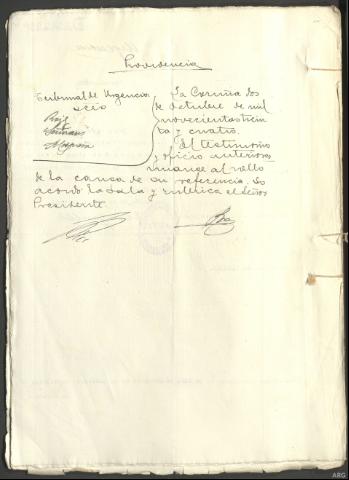 Providencia
Tribunal de Urgencia
La Coruña dos
de Octubre de mil
novecientos trein
ta y cuatro.
El testimonio
y oficio anteriores
al rollo
de la causa de su referencia. Lo
acordó la Sala y rubrica el Señor
Presidente.
ARG